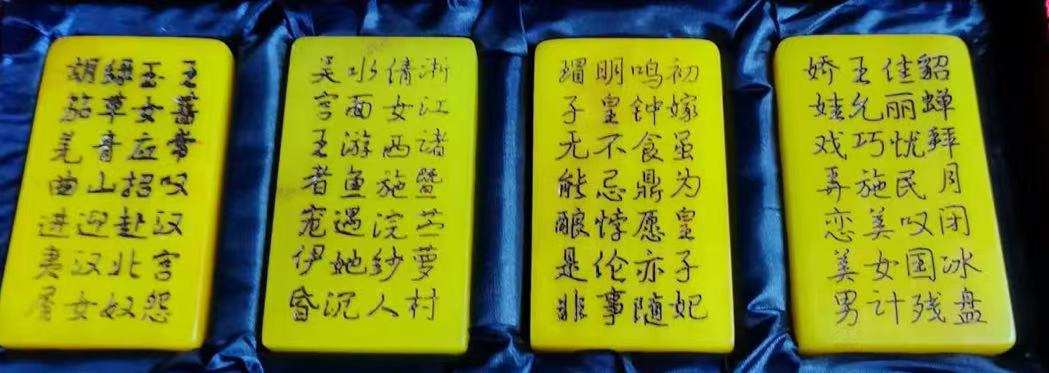 貂蝉拜月闭冰盘
佳丽忧民叹国残
王允巧施美女计
娇娃戏弄恋美男
初嫁虽为皇子妃
鸣钟食鼎愿亦随
明皇不忌悖伦事
瑁子无能酿是非
浙江诸暨苎萝村
倩女西施浣纱人
水面游鱼遇她沉
吴宫王者宠伊昏
王蔷常叹汉宫怨
玉女应招赴北奴
绿草青山迎汉女
胡笳羌曲进夷屋